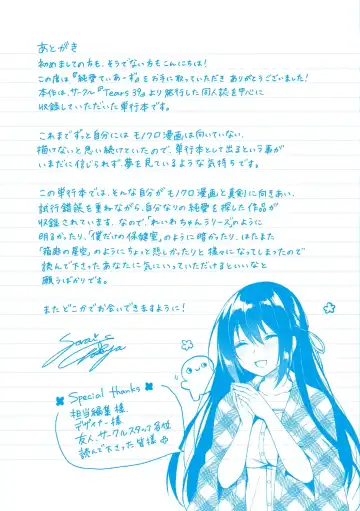 あとがき
初めましての方も、そうでない方もこんにちは!
この度は『純愛てぃあーず』をお手に取っていただき ありがとうございました!
本作は、サークル『Tears 39』より発行した同人誌を中心に
収録していただいた単行本です。
これまでずっと自分には モノクロ漫画は向いていない、
描けないと思い続けていたので、単行本として出るという事が
いまだに信じられず、夢を見ているような気持ちです。
この単行本では、そんな自分が モノクロ漫画と真剣に向きあい、
試行錯誤を重ねながら、自分なりの純愛を探した作品が
収録されています。なので、『れいわちゃんシリーズ』のように
明るかったり、『僕だけの保健室』のように暗かったり、はたまた
『箱庭の星空』のようにちょっと悲しかったりと様々になってしまったので
読んで下さったあなたに気にいっていただけるといいなと
願うばかりです。
またどこかでお会いできますように!
Special thanks
担当編集様
デザイナー様
友人、サークルスタッフ各位
読んで下さった皆様